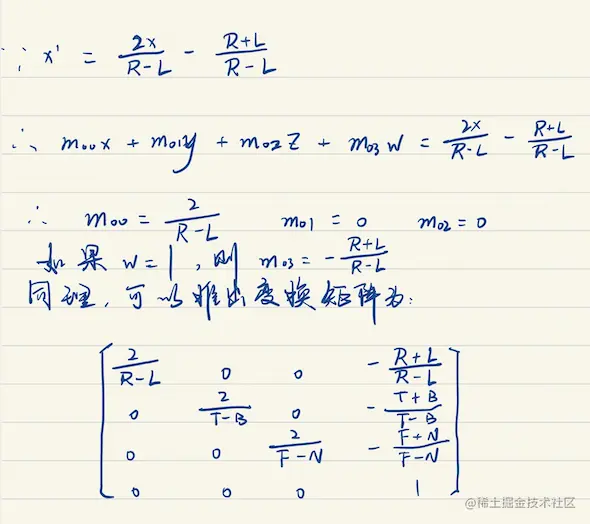 ∵ x' = 2x/(R-L) - (R+L)/(R-L)
∴ m00x + m01y + m02z + m03w = 2x/(R-L) - (R+L)/(R-L)
∴ m00 = 2/(R-L) m01 = 0 m02 = 0
如果 w=1, 则 m03 = -(R+L)/(R-L)
同理, 可以推出变换矩阵为:
2/(R-L) 0 0 -(R+L)/(R-L)
0 2/(T-B) 0 -(T+B)/(T-B)
0 0 2/(F-N) -(F+N)/(F-N)
0 0 0 1
@稀土掘金技术社区